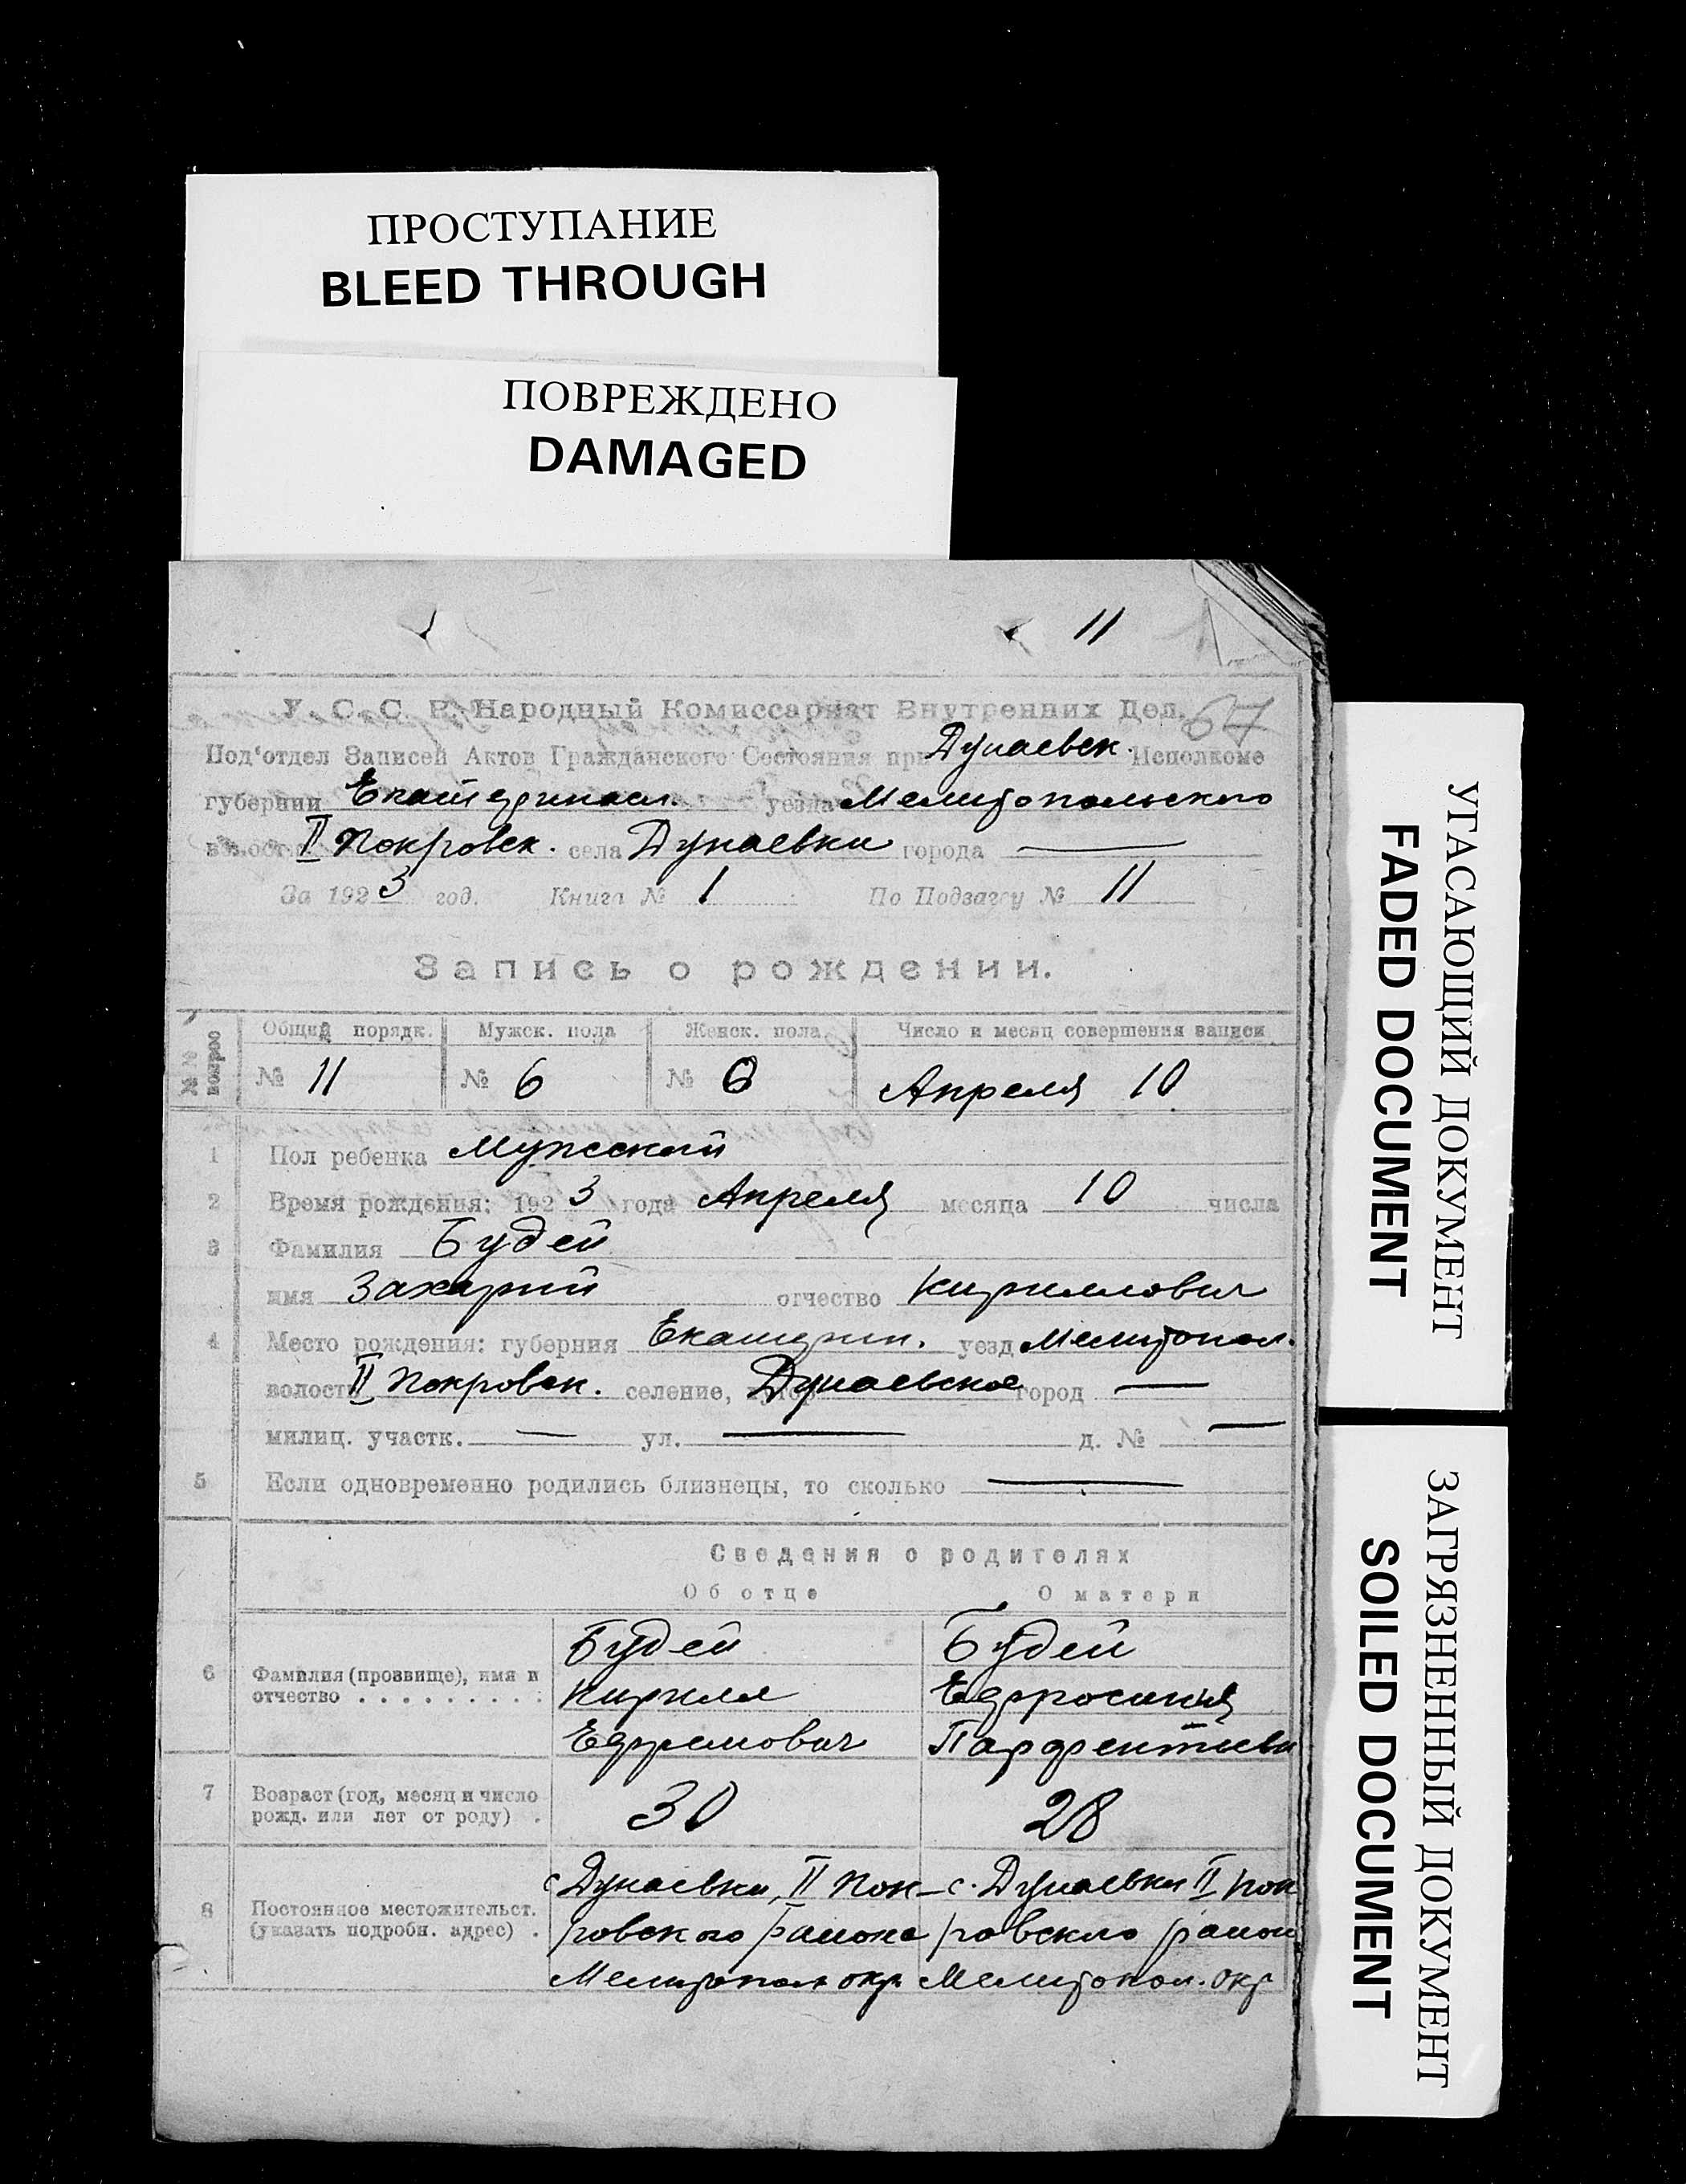 ПРОСТУПАНИЕ
BLEED THROUGH
ПОВРЕЖДЕНО
DAMAGED
11
67
У. С. С. Р. Народный Комиссариат Внутренних Дел.
Под'отдел Записей Актов Гражданского Состояния при Дунаевск. Исполкоме
губернии Екатеринасл. уезда Мелитопольского
волости II Покровск. села Дунаевки города —
За 1923 год. Книга № 1 По Подзагсу № 11
Запись о рождении.
№№ вопрос
Общий порядк. Мужск. пола Женск. пола Число и месяц совершения записи
№ 11 № 6 № Апреля 10
1 Пол ребенка Мужской
2 Время рождения: 1923 года Апреля месяца 10 числа
3 Фамилия Будей
имя Захарий отчество Кириллович
4 Место рождения: губерния Екатерин. уезд Мелитопол.
волость II Покровск. селение, Дунаевское город —
милиц. участк. — ул. — д. № —
5 Если одновременно родились близнецы, то сколько —
Сведения о родителях
Об отце О матери
6 Фамилия (прозвище), имя и отчество . . . . . . . . . .
Будей Будей
Кирилл Ефросиния
Ефремович Парфентиевн
7 Возраст (год, месяц и число рожд. или лет от роду) . 30 28
8 Постоянное местожительст. (указать подробн. адрес) .
с Дунаевки, II Пок- с. Дунаевки II Пок
ровского района ровского район
Мелитопол окр Мелитопол. окр
УГАСАЮЩИЙ ДОКУМЕНТ
FADED DOCUMENT
ЗАГРЯЗНЕННЫЙ ДОКУМЕНТ
SOILED DOCUMENT